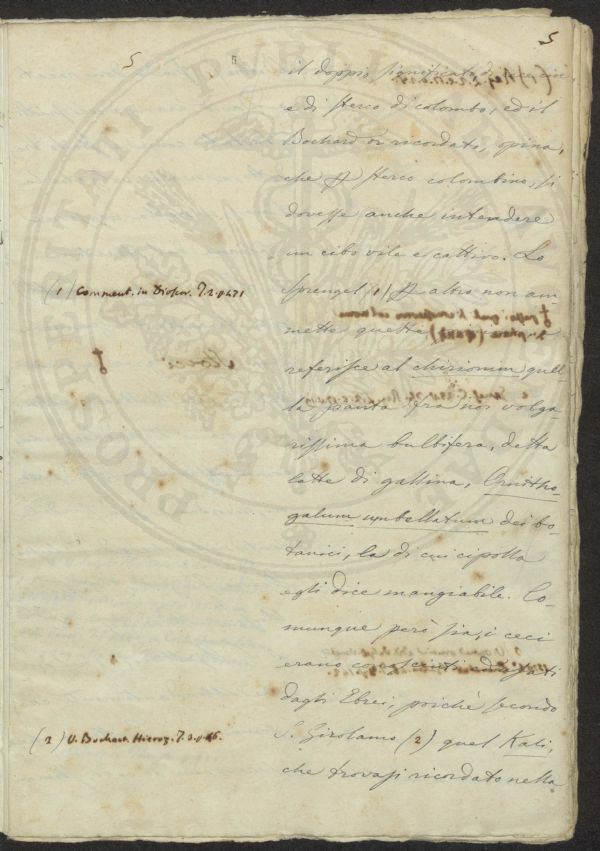 5
5
5
il doppio significato di
e di sterco di colombo, ed il
Bochard or ricordato, opina,
che p sterco colombino, si
dovesse anche intendere
un cibo vile e cattivo. Lo
Sprengel (1) p altro non am-
mette queste
referisce al chirionim quel-
la pianta fra noi volga-
rissima bulbifera, detta
latte di gallina, Ornitho-
galum umbellatum dei bo-
tanici, la di cui cipolla
egli dice mangiabile. Co-
munque però sia, i ceci
erano conosciuti ed
dagli Ebrei, poichè secondo
S. Girolamo (2) quel Kali,
che trovasi ricordato nella
(1) Comment. in Dioscor. T.2. p 471
(2) V. Bochart. Hieroz. T.2. p
PROSPERITATI PUBLICAE AUGENDAE